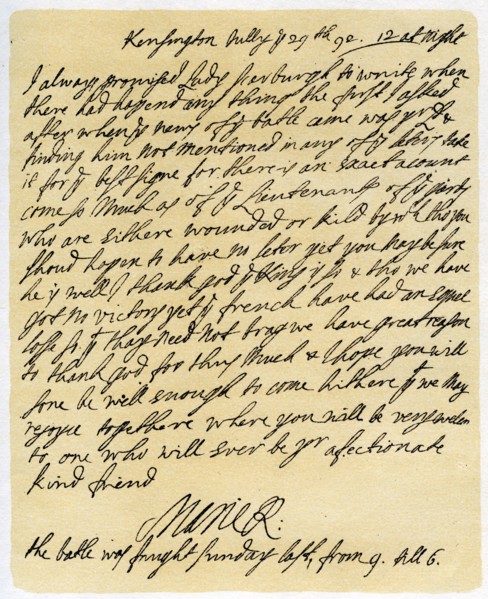 Kensington Jully ye 29th 92. 12 at night
I always promised Lady Scarburgh to write when
there had hapend any thing the first I asked
after when ye news of ye batle came was yr Ld &
finding him not mentioned in any of ye leters take
it for ye best signe for there is an exact account
come so much as of ye Lieutenants of ye
who are eithere wounded or kild by wch tho you
shoud hapen to have no leter yet you may be sure
he is well I thank god ye King is so & tho we have
got no victory yet ye french have had an equel
lose so yt thay need not brag we have great reason
to thank god for thus much & I hope you will
sone be well enough to come hithere yt we may
rejoyce togethere where you will be very welcom
to one who will ever be yr afectionate
kind friend
Marie R:
the batle was fought sunday last, from 9. till 6.